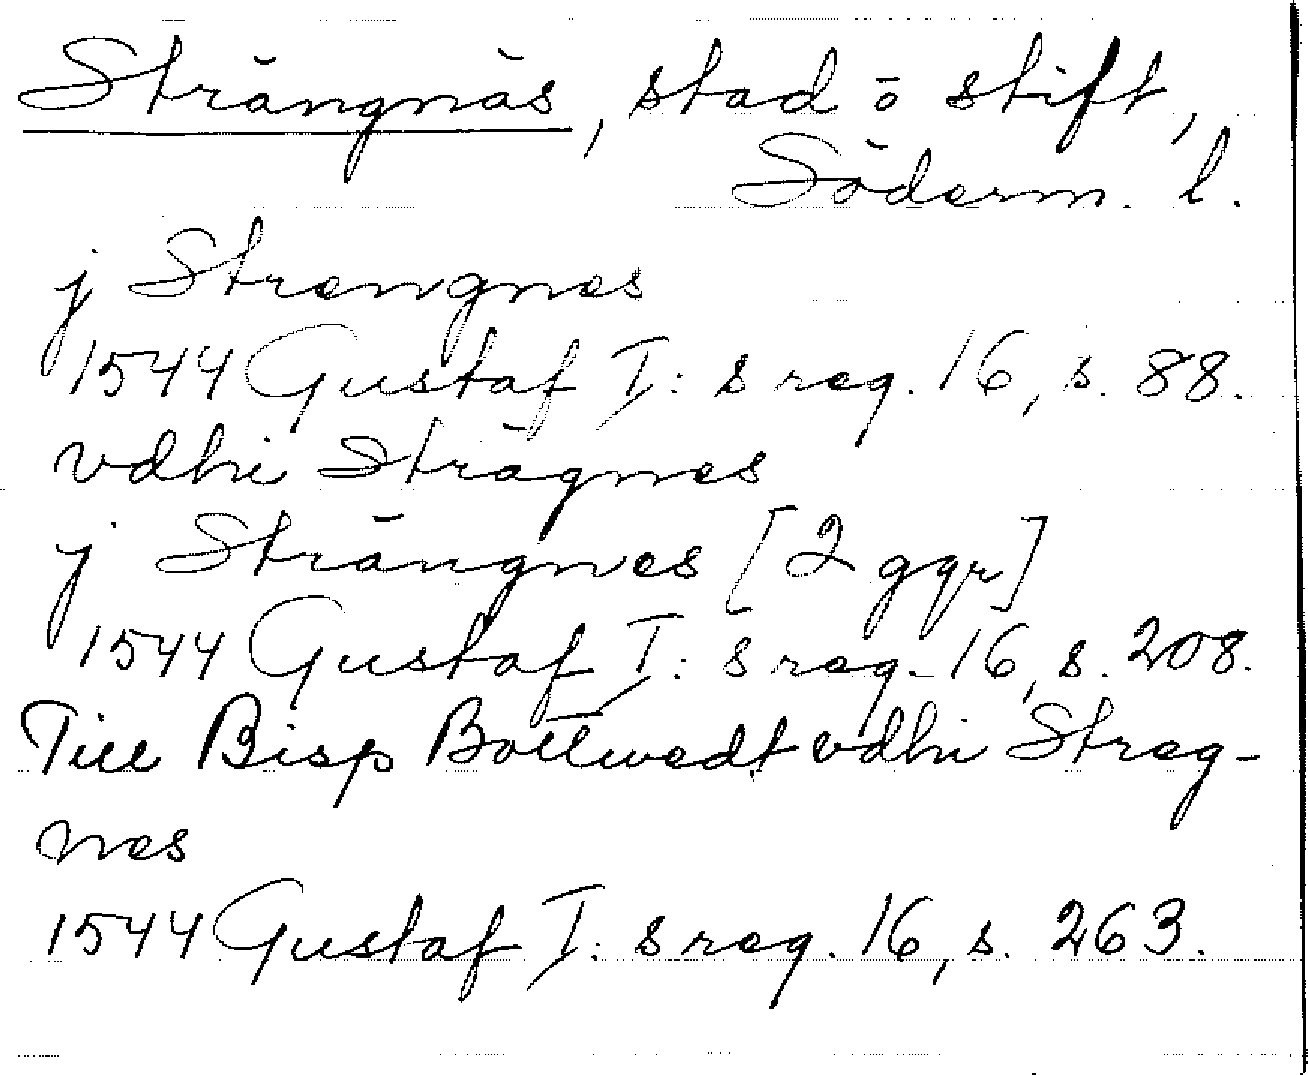 Strängnäs, stad o stift,
Söderm. l.
j Strengnes
1544 Gustaf I:s reg. 16, s. 88.
vdhi Strägnes
j Strängnes [2 ggr]
1544 Gustaf I:s reg. 16, s. 208.
Till Bisp Bottwedt vdhi Streg-
nes
1544 Gustaf I:s reg. 16, s. 263.